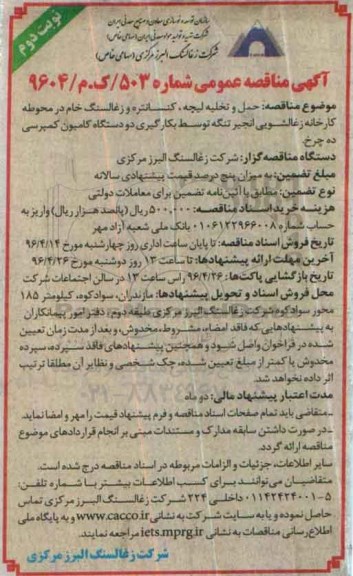 نوبت دوم
سازمان توسعه و نوسازی معادن و صنایع معدنی ایران
شرکت تهیه و تولید مواد معدنی ایران (سهامی خاص)
شرکت زغالسنگ البرز مرکزی (سهامی خاص)
آگهی مناقصه عمومی شماره ۵۰۳/ک.م/۹۶۰۴
موضوع مناقصه: حمل و تخلیه لیچه، کنسانتره و زغالسنگ خام در محوطه
کارخانه زغالشویی انجیر تنگه توسط بکارگیری دو دستگاه کامیون کمپرسی
ده چرخ.
دستگاه مناقصه گزار: شرکت زغالسنگ البرز مرکزی
مبلغ تضمین: به میزان پنج درصد قیمت پیشنهادی سالانه
نوع تضمین: مطابق با آئین نامه تضمین برای معاملات دولتی
هزینه خرید اسناد مناقصه: ۵۰۰،۰۰۰ ریال (پانصد هزار ریال) واریز به
حساب شماره ۰۱۰۶۱۲۲۹۶۶۰۰۸ بانک ملی شعبه آزاد مهر
تاریخ فروش اسناد مناقصه: تا پایان ساعت اداری روز چهارشنبه مورخ ۹۶/۴/۱۴
آخرین مهلت ارائه پیشنهادها: تا ساعت ۱۳ روز دوشنبه مورخ ۹۶/۴/۲۶
تاریخ بازگشایی پاکت‌ها: ۹۶/۴/۲۶ راس ساعت ۱۳ در سالن اجتماعات شرکت
محل فروش اسناد و تحویل پیشنهادها: مازندران، سوادکوه، کیلومتر ۱۸۵
محور سوادکوه شرکت زغالسنگ البرز مرکزی طبقه دوم، دفتر امور پیمانکاران
به پیشنهادهایی که فاقد امضاء، مشروط، مخدوش، و بعد از مدت زمان تعیین
شده در فراخوان واصل شود و همچنین پیشنهادهای فاقد سپرده، سپرده
مخدوش یا کمتر از مبلغ تعیین شده، چک شخصی و نظایر آن مطلقا ترتیب
اثر داده نخواهد شد.
مدت اعتبار پیشنهاد مالی: دو ماه
ـ متقاضی باید تمام صفحات اسناد مناقصه و فرم پیشنهاد قیمت را مهر و امضا نماید.
ـ در صورت داشتن سابقه مدارک و مستندات مبنی بر انجام قراردادهای موضوع
مناقصه ارائه گردد.
سایر اطلاعات، جزئیات و الزامات مربوطه در اسناد مناقصه درج شده است.
متقاضیان می‌توانند برای کسب اطلاعات بیشتر با شماره تلفن:
۵-۰۱۱۴۲۴۲۴۰۰۱ داخلی ۲۲۴ شرکت زغالسنگ البرز مرکزی تماس
حاصل نموده و یا به سایت شرکت به نشانی www.cacco.ir و به پایگاه ملی
اطلاع‌رسانی مناقصات به نشانی iets.mprg.ir مراجعه نمایند.
شرکت زغالسنگ البرز مرکزی